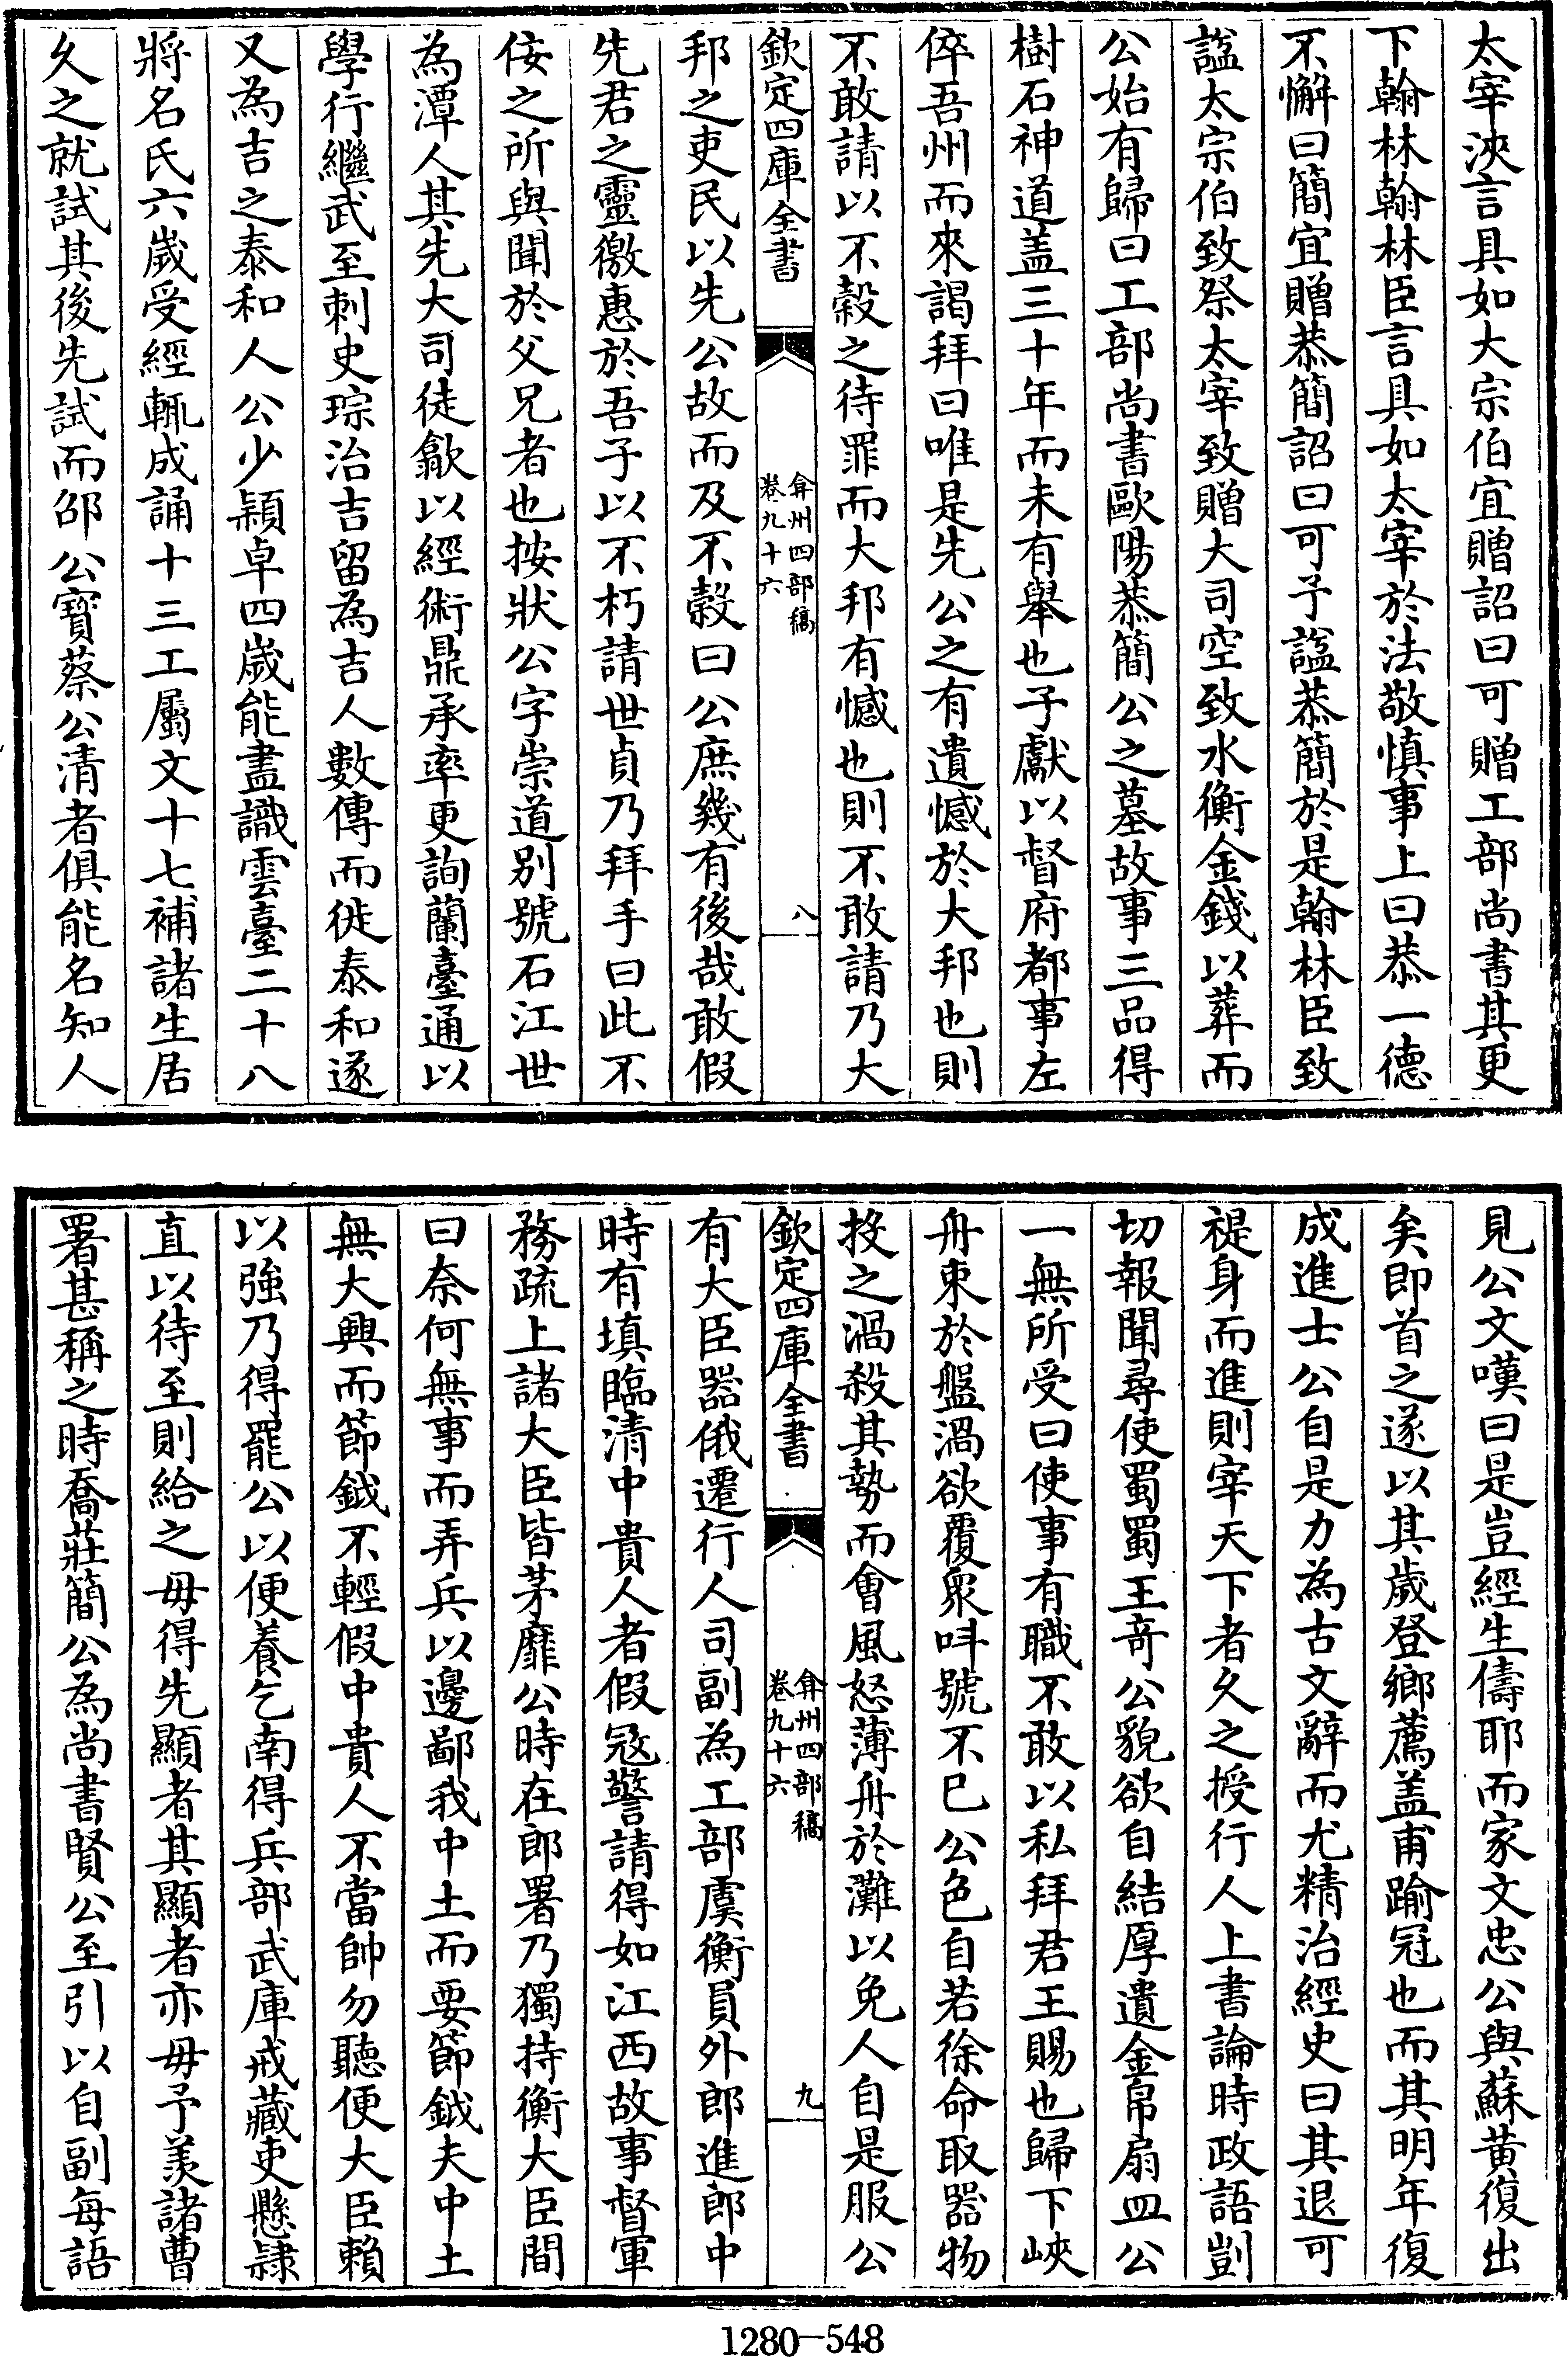 太宰浹言具如大宗伯宜贈詔曰可贈工部尚書其更
下翰林翰林臣言具如太宰於法敬慎事上曰恭一德
不懈曰簡宜贈恭簡詔曰可予諡恭簡於是翰林臣致
諡太宗伯致祭太宰致贈大司空致水衡金錢以葬而
公始有歸曰工部尚書歐陽恭簡公之墓故事三品得
樹石神道盖三十年而未有舉也子獻以督府都事左
倅吾州而來謁拜曰唯是先公之有遺憾於大邦也則
不敢請以不榖之待罪而大邦有憾也則不敢請乃大
欽定四庫全書
弇州四部稿
卷九十六
八
邦之吏民以先公故而及不榖曰公庶幾有後哉敢假
先君之靈徼惠於吾子以不朽請世貞乃拜手曰此不
佞之所與聞於父兄者也按狀公字崇道别號石江世
為潭人其先大司徒歙以經術鼎承率更詢蘭臺通以
學行繼武至刺史琮治吉留為吉人數傳而徙泰和遂
又為吉之泰和人公少穎卓四嵗能盡識雲臺二十八
將名氏六嵗受經輒成誦十三工屬文十七補諸生居
久之就試其後先試而邵公寶蔡公清者俱能名知人
見公文嘆曰是豈經生儔耶而家文忠公與蘇黄復出
矣即首之遂以其嵗登鄉薦盖甫踰冠也而其明年復
成進士公自是力為古文辭而尤精治經史曰其退可
禔身而進則宰天下者久之授行人上書論時政語剴
切報聞尋使蜀蜀王竒公貌欲自結厚遺金帛扇皿公
一無所受曰使事有職不敢以私拜君王賜也歸下峽
舟束於盤渦欲覆衆呌號不已公色自若徐命取器物
投之渦殺其勢而會風怒薄舟於灘以免人自是服公
欽定四庫全書
弇州四部稿
卷九十六
九
有大臣器俄遷行人司副為工部虞衡員外郎進郎中
時有填臨清中貴人者假冦警請得如江西故事督軍
務疏上諸大臣皆茅靡公時在郎署乃獨持衡大臣間
曰奈何無事而弄兵以邊鄙我中土而要節鉞夫中土
無大興而節鉞不輕假中貴人不當帥勿聽便大臣頼
以強乃得罷公以便養乞南得兵部武庫戒藏吏懸隷
直以待至則給之毋得先顯者其顯者亦毋予羨諸曹
署甚稱之時喬莊簡公為尚書賢公至引以自副每語
1280—548